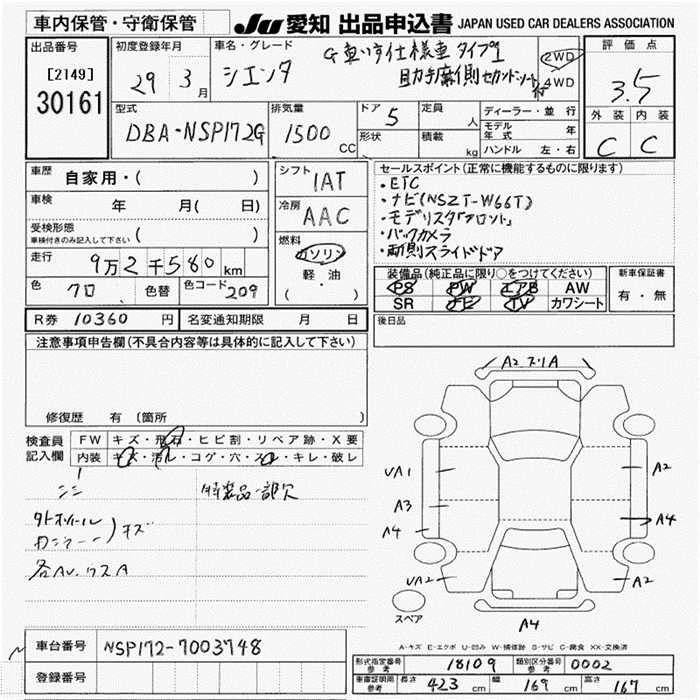 車内保管・守衛保管
JU 愛知 出品申込書 JAPAN USED CAR DEALERS ASSOCIATION
出品番号
[2149]
30161
初度登録年月
29年 3月
車名・グレード
シエンタ
G 車いす仕様車 タイプI
助手席側セカンドシート付
2WD
4WD
評価点
3.5
外装 内装
C C
型式
DBA-NSP172G
排気量
1500 CC
ドア 5
形状
定員 人
積載 kg
ディーラー・並行
モデル年式 年
ハンドル 左・右
車歴 自家用・( )
車検 年 月( 日)
受検形態
車検付きのみ記入して下さい ( )
走行 9万2千580km
色 クロ 色替 色コード 209
シフト
IAT
冷房
AAC
燃料
ガソリン
軽・油
( )
セールスポイント(正常に機能するものに限ります)
・ETC
・ナビ(NSZT-W66T)
・モデリスタ「フロント」
・バックカメラ
・両側スライドドア
装備品(純正品に限り○をつけてください)
PS PW エアB AW
SR ナビ TV カワシート
新車保証書
有・無
R券 10360円
名変通知期限 月 日
後日品
注意事項申告欄(不具合内容等は具体的に記入して下さい)
修復歴 有 (箇所 )
検査員記入欄
FW キズ・飛石・ヒビ割・リペア跡・X要
内装 キズ・汚レ・コゲ・穴・スレ・キレ・破レ
内装品一部欠
キズ
各AU.クスA
A2 スリA
UA1
A2
A3
A4
A4
UA2
A2
スペア
A4
A-キズ E-エクボ U-凹み W-補修跡 S-サビ C-腐食 XX-交換済
車台番号 NSP172-7003748
登録番号
形式指定番号 参考 18109
類別区分番号 参考 0002
車検証明用 参考 長さ 423 cm 幅 169 cm 高さ 167 cm